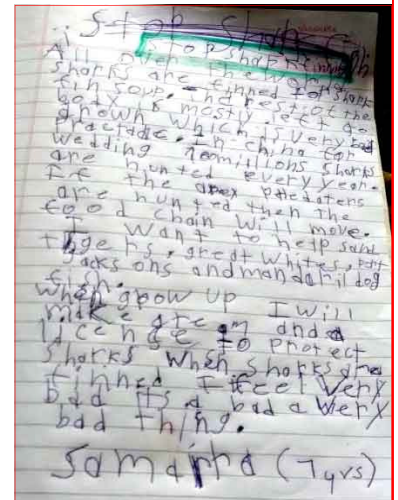 stop shark
stop shark finning
All over the world
sharks are finned for shark
fin soup. And rest of the
body is mostly let go
grown which is very bad
practade. In china for
wedding 100 millions sharks
are hunted every year.
If the apex predators
are hunted then the
food chain will move.
I want to help sand
tigers, great whites,
jacksons and mandaril dog
fish.
when grow up I will
make and a
licence to protect
sharks when sharks are
finned I feel very
bad its a bad a very
bad thing.
Samaira (7 yrs)